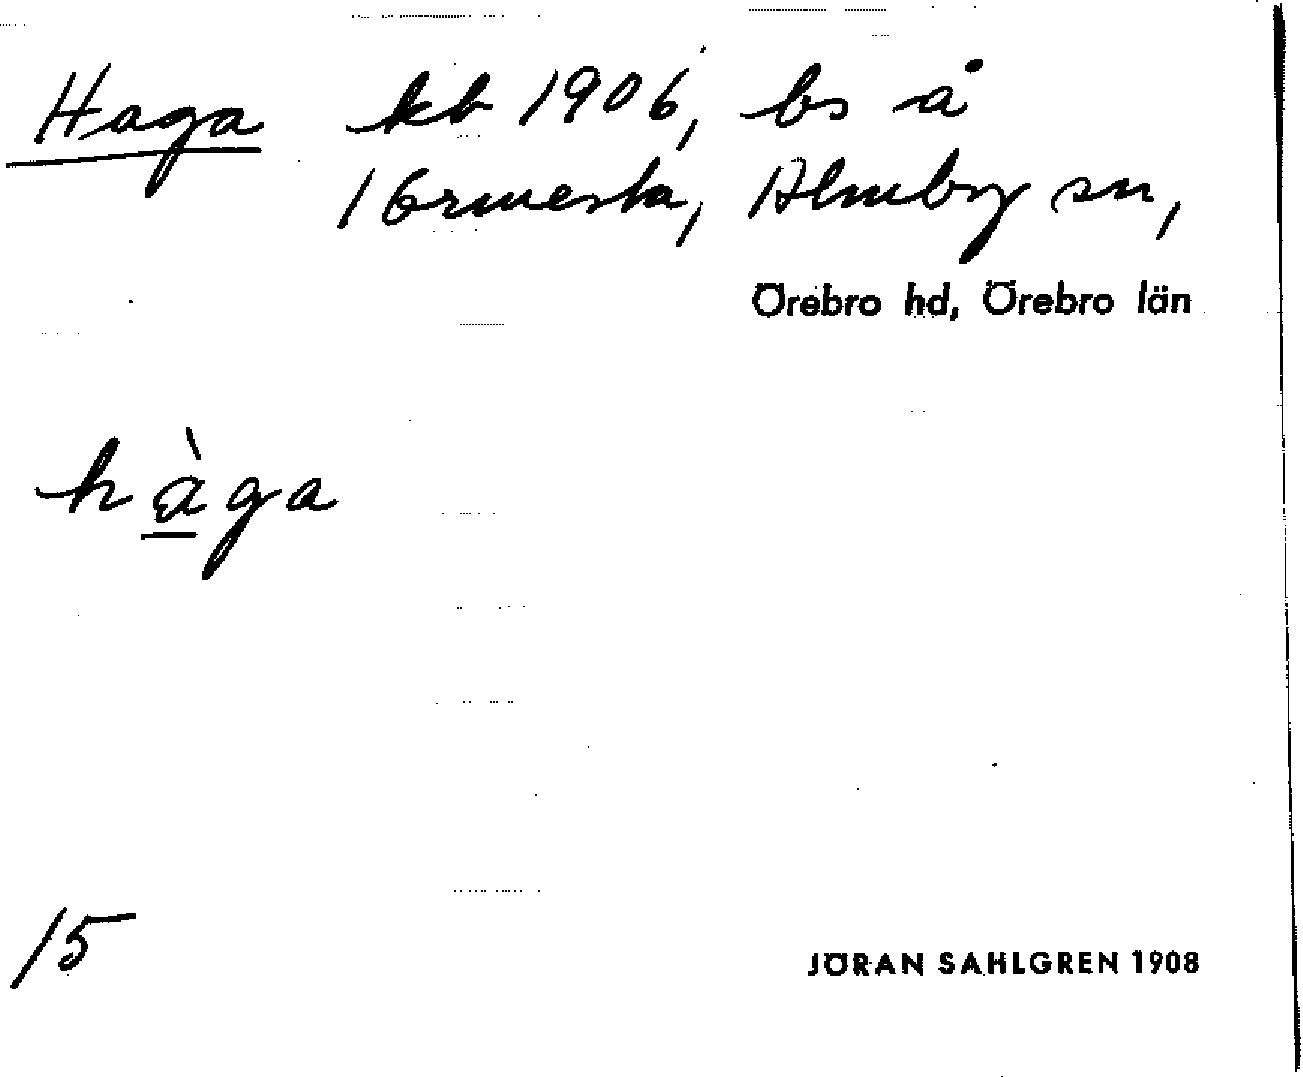 Haga kb 1906, bs å
1 Ormesta, Almby sn,
Örebro hd, Örebro län
hàga
15
JÖRAN SAHLGREN 1908